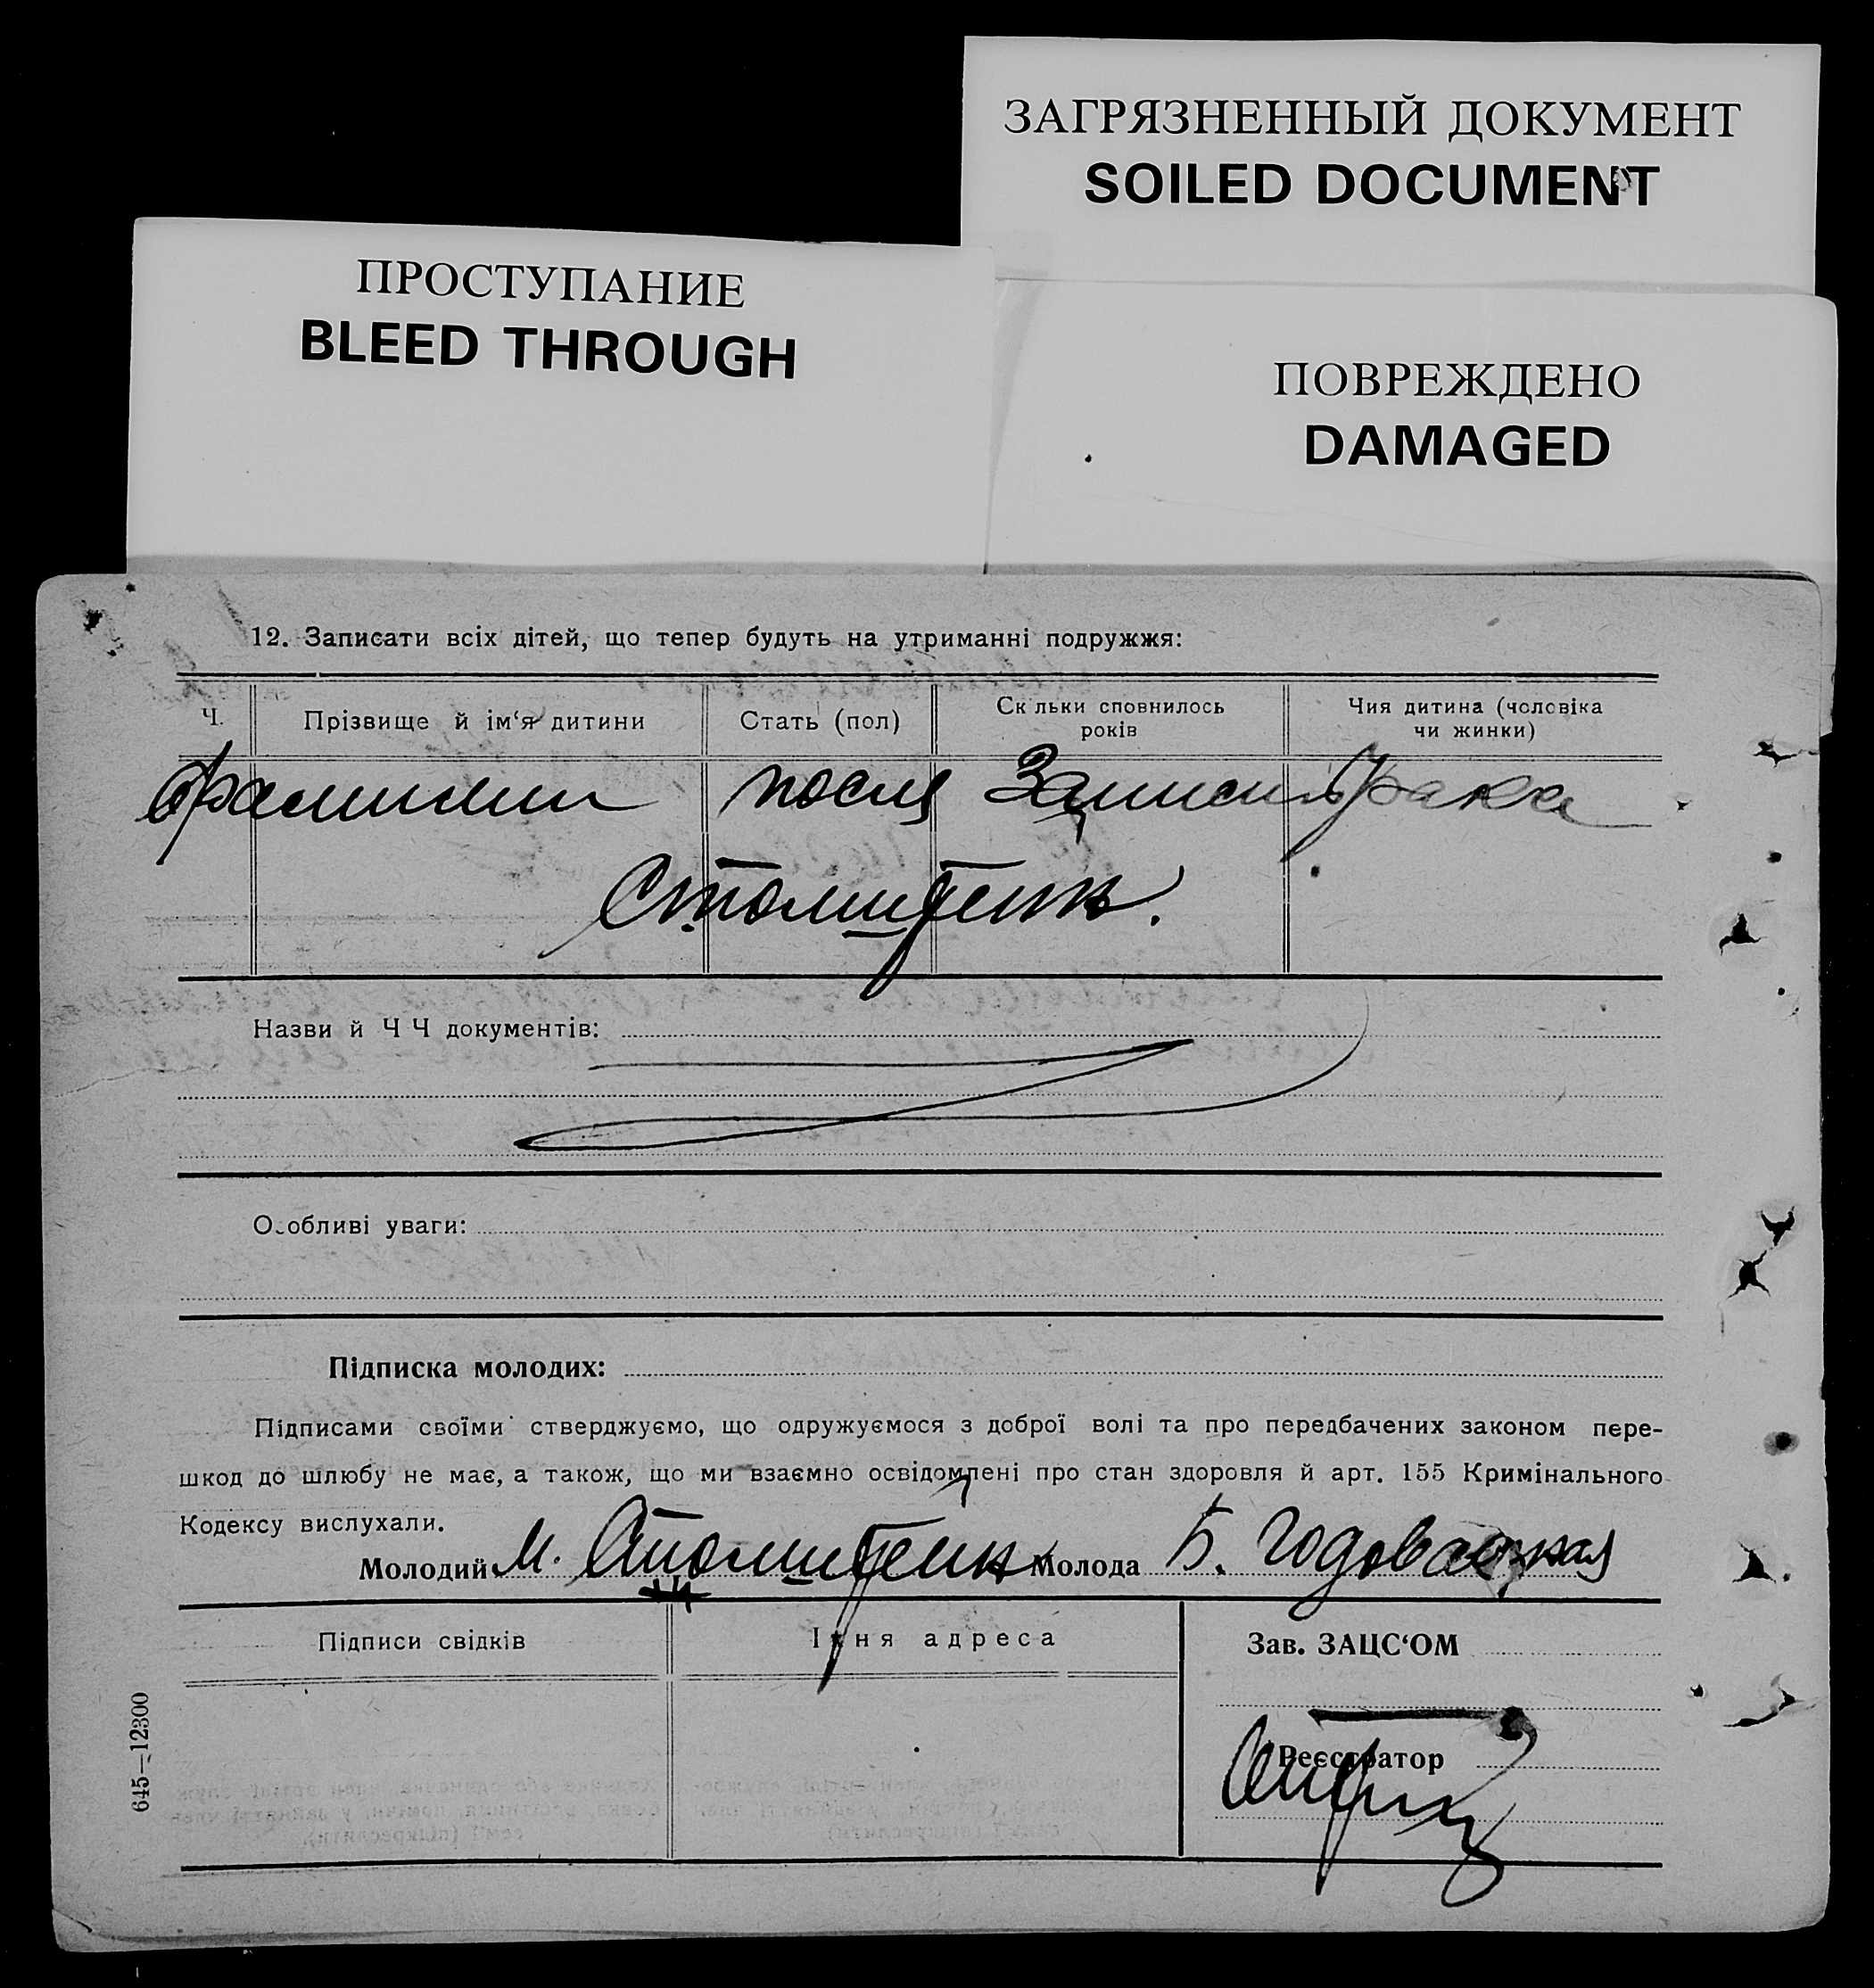 ЗАГРЯЗНЕННЫЙ ДОКУМЕНТ
SOILED DOCUMENT
ПРОСТУПАНИЕ
BLEED THROUGH
ПОВРЕЖДЕНО
DAMAGED
12. Записати всіх дітей, що тепер будуть на утриманні подружжя:
Ч. Прізвище й ім‘я дитини Стать (пол) Скільки сповнилось років Чия дитина (чоловіка чи жинки)
фамилии после Записи брака
Назви й Ч Ч документів:
Особливі уваги:
Підписка молодих:
Підписами своїми стверджуємо, що одружуємося з доброї волі та про передбачених законом пере-
шкод до шлюбу не має, а також, що ми взаємно освідомлені про стан здоровля й арт. 155 Кримінального
Кодексу вислухали.
Молодий М. Молода Б.
Підписи свідків Їхня адреса Зав. ЗАЦС‘ОМ
Реєстратор
645—12300